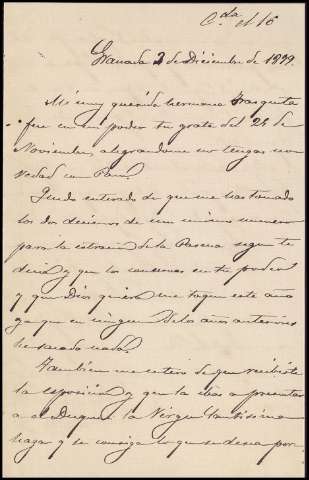 Cda el 16
Granada 3 de Diciembre de 1899.
Mi muy querida hermana Frasquita
fue en mi poder tu grata del 28 de
Noviembre, alegrandome no tengas nov
vedad con Paco.
Quedo enterado de que me has tomado
los dos decimos de un mismo numero
para la estracion de la Pascua segun te
decia y que los conservas en tu poder
y que Dios quiera me toque este año
ya que en ningun de los años anteriores
he sacado nada.
Tambien me entero de que recibiste
la esposicion y que la ibas a presentar
a el Duque la Virgen Santisima
haga y se consiga lo que se desea por